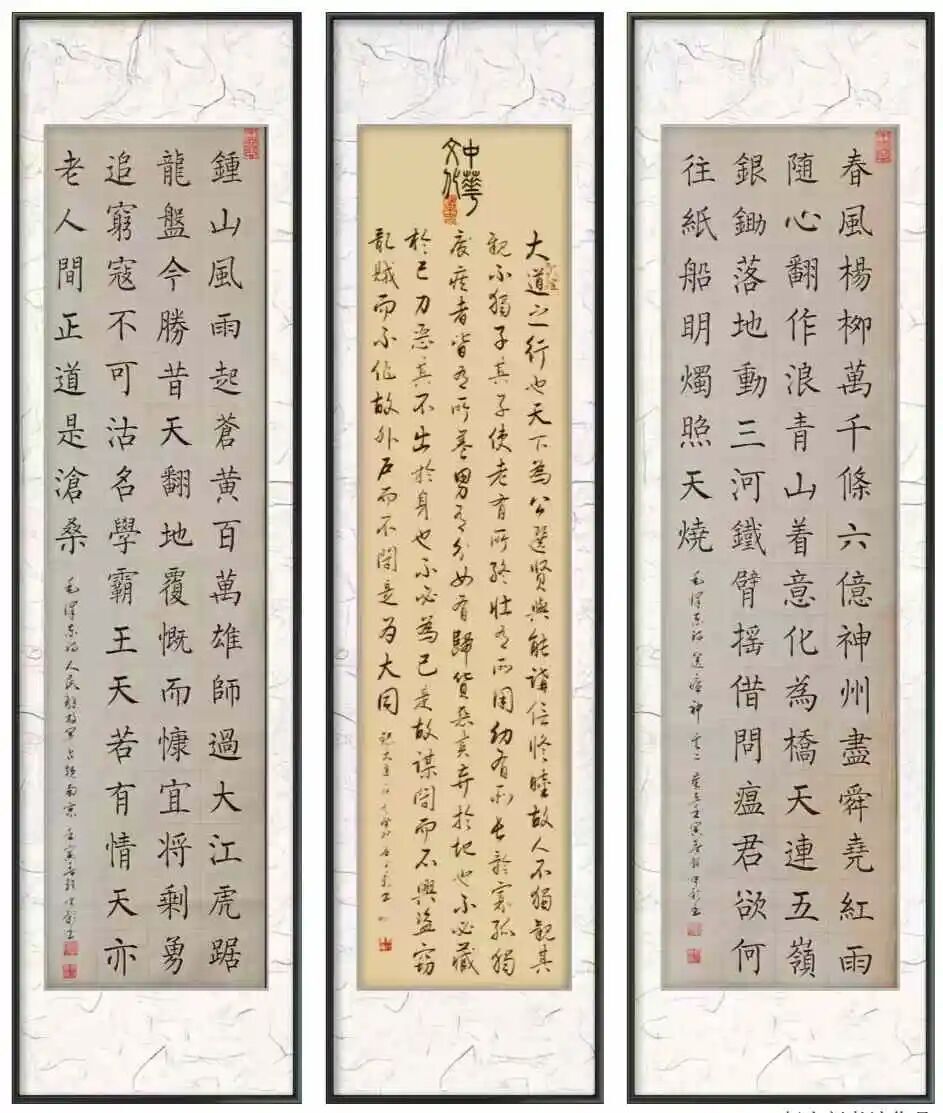 春風楊柳萬千條六億神州盡舜堯紅雨
随心翻作浪青山着意化為橋天連五嶺
銀鋤落地動三河鐵臂摇借問瘟君欲何
往紙船明燭照天燒
毛澤东詩送瘟神
中華
文化
大道之行也天下為公選賢與能講信修睦故人不獨親其
親不獨子其子使老有所終壮有所用幼有所长矜寡孤獨
廢疾者皆有所養男有分女有歸貨惡其弃於地也不必藏
於己力惡其不出於身也不必為己是故謀闭而不興盗窃
亂賊而不作故外户而不闭是为大同
鍾山風雨起蒼黄百萬雄師過大江虎踞
龍盤今勝昔天翻地覆慨而慷宜將剩勇
追窮寇不可沽名學霸王天若有情天亦
老人間正道是滄桑
毛澤东詩人民解放軍占領南京壬寅